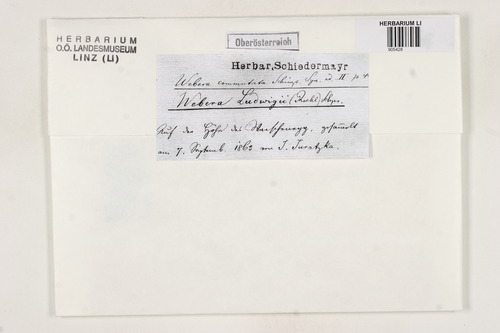 HERBARIUM
O.Ö. LANDESMUSEUM
LINZ (LI)
Oberösterreich
HERBARIUM LI
Herbar, Schiedermayr
Webera commutata Schimp. Syn. ed. II p.
Webera Ludwigii
Auf der Höhe des gesammelt
am 7. Septemb. 1863 von J. Juratzka.